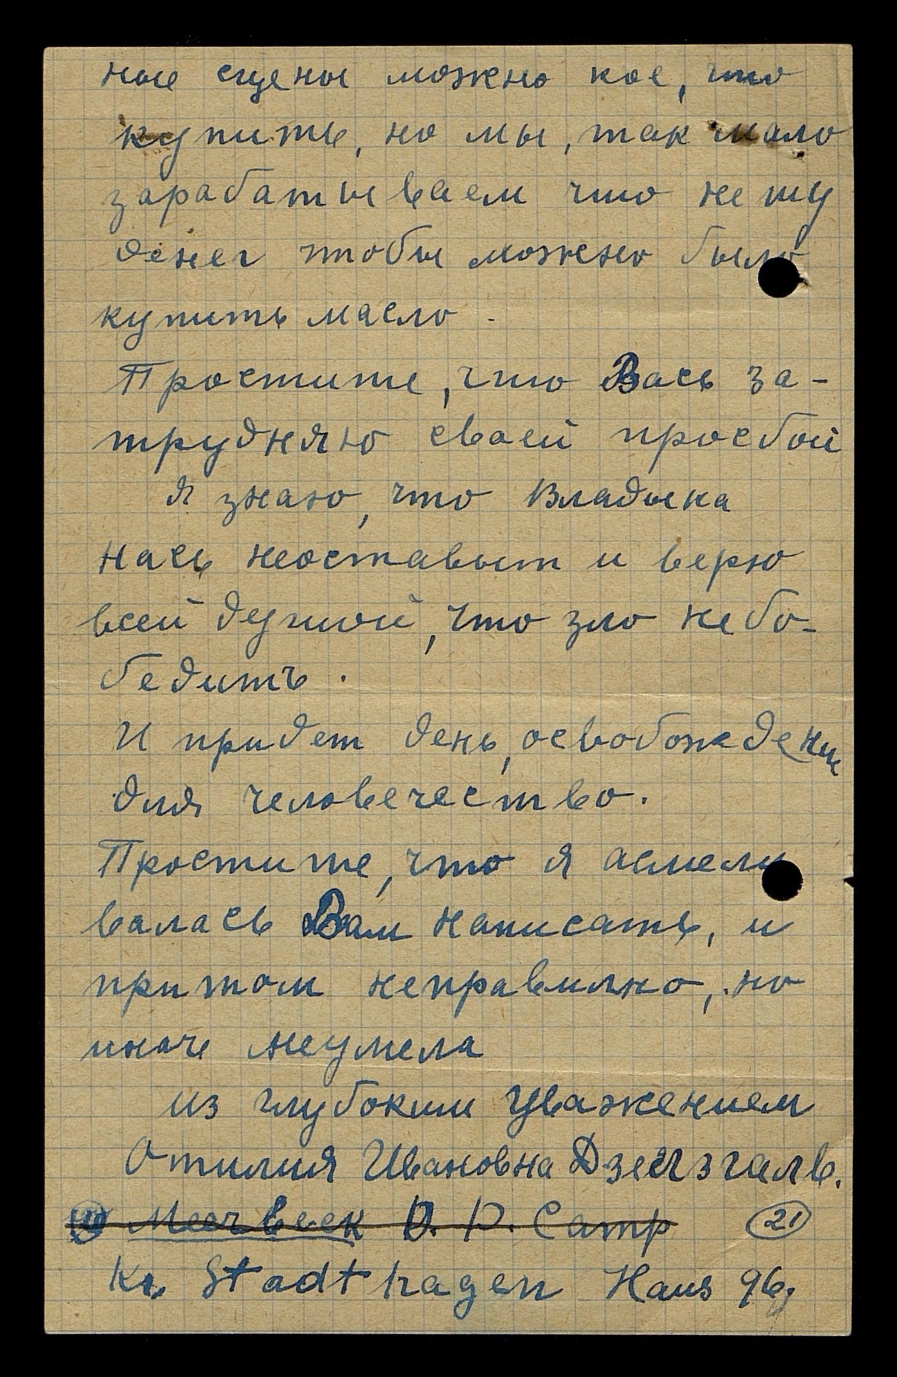 ные сцены можно кое, что
купить, но мы, так мало
зарабатываем что не ту
денег чтобы можно было
купить масло.
Простите, что Вась за-
трудняю сваей просбой
Я знаю, что Владыка
нась неоставыт и верю
всей душой, что зло не бо-
бедить.
И придет день, освобождении
для человечество.
Простите, что я асмели
валась Вам написать, и
притом неправилно, но
иначе неумела
из глубоким уважением
Отилия Ивановна
D. P. Camp 21
Kr. Stadthagen Haus 96,